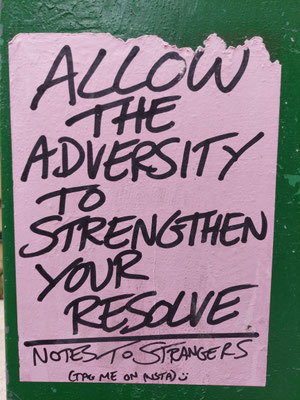 ALLOW
THE
ADVERSITY
TO
STRENGTHEN
YOUR
RESOLVE
NOTES TO STRANGERS
(TAG ME ON INSTA)